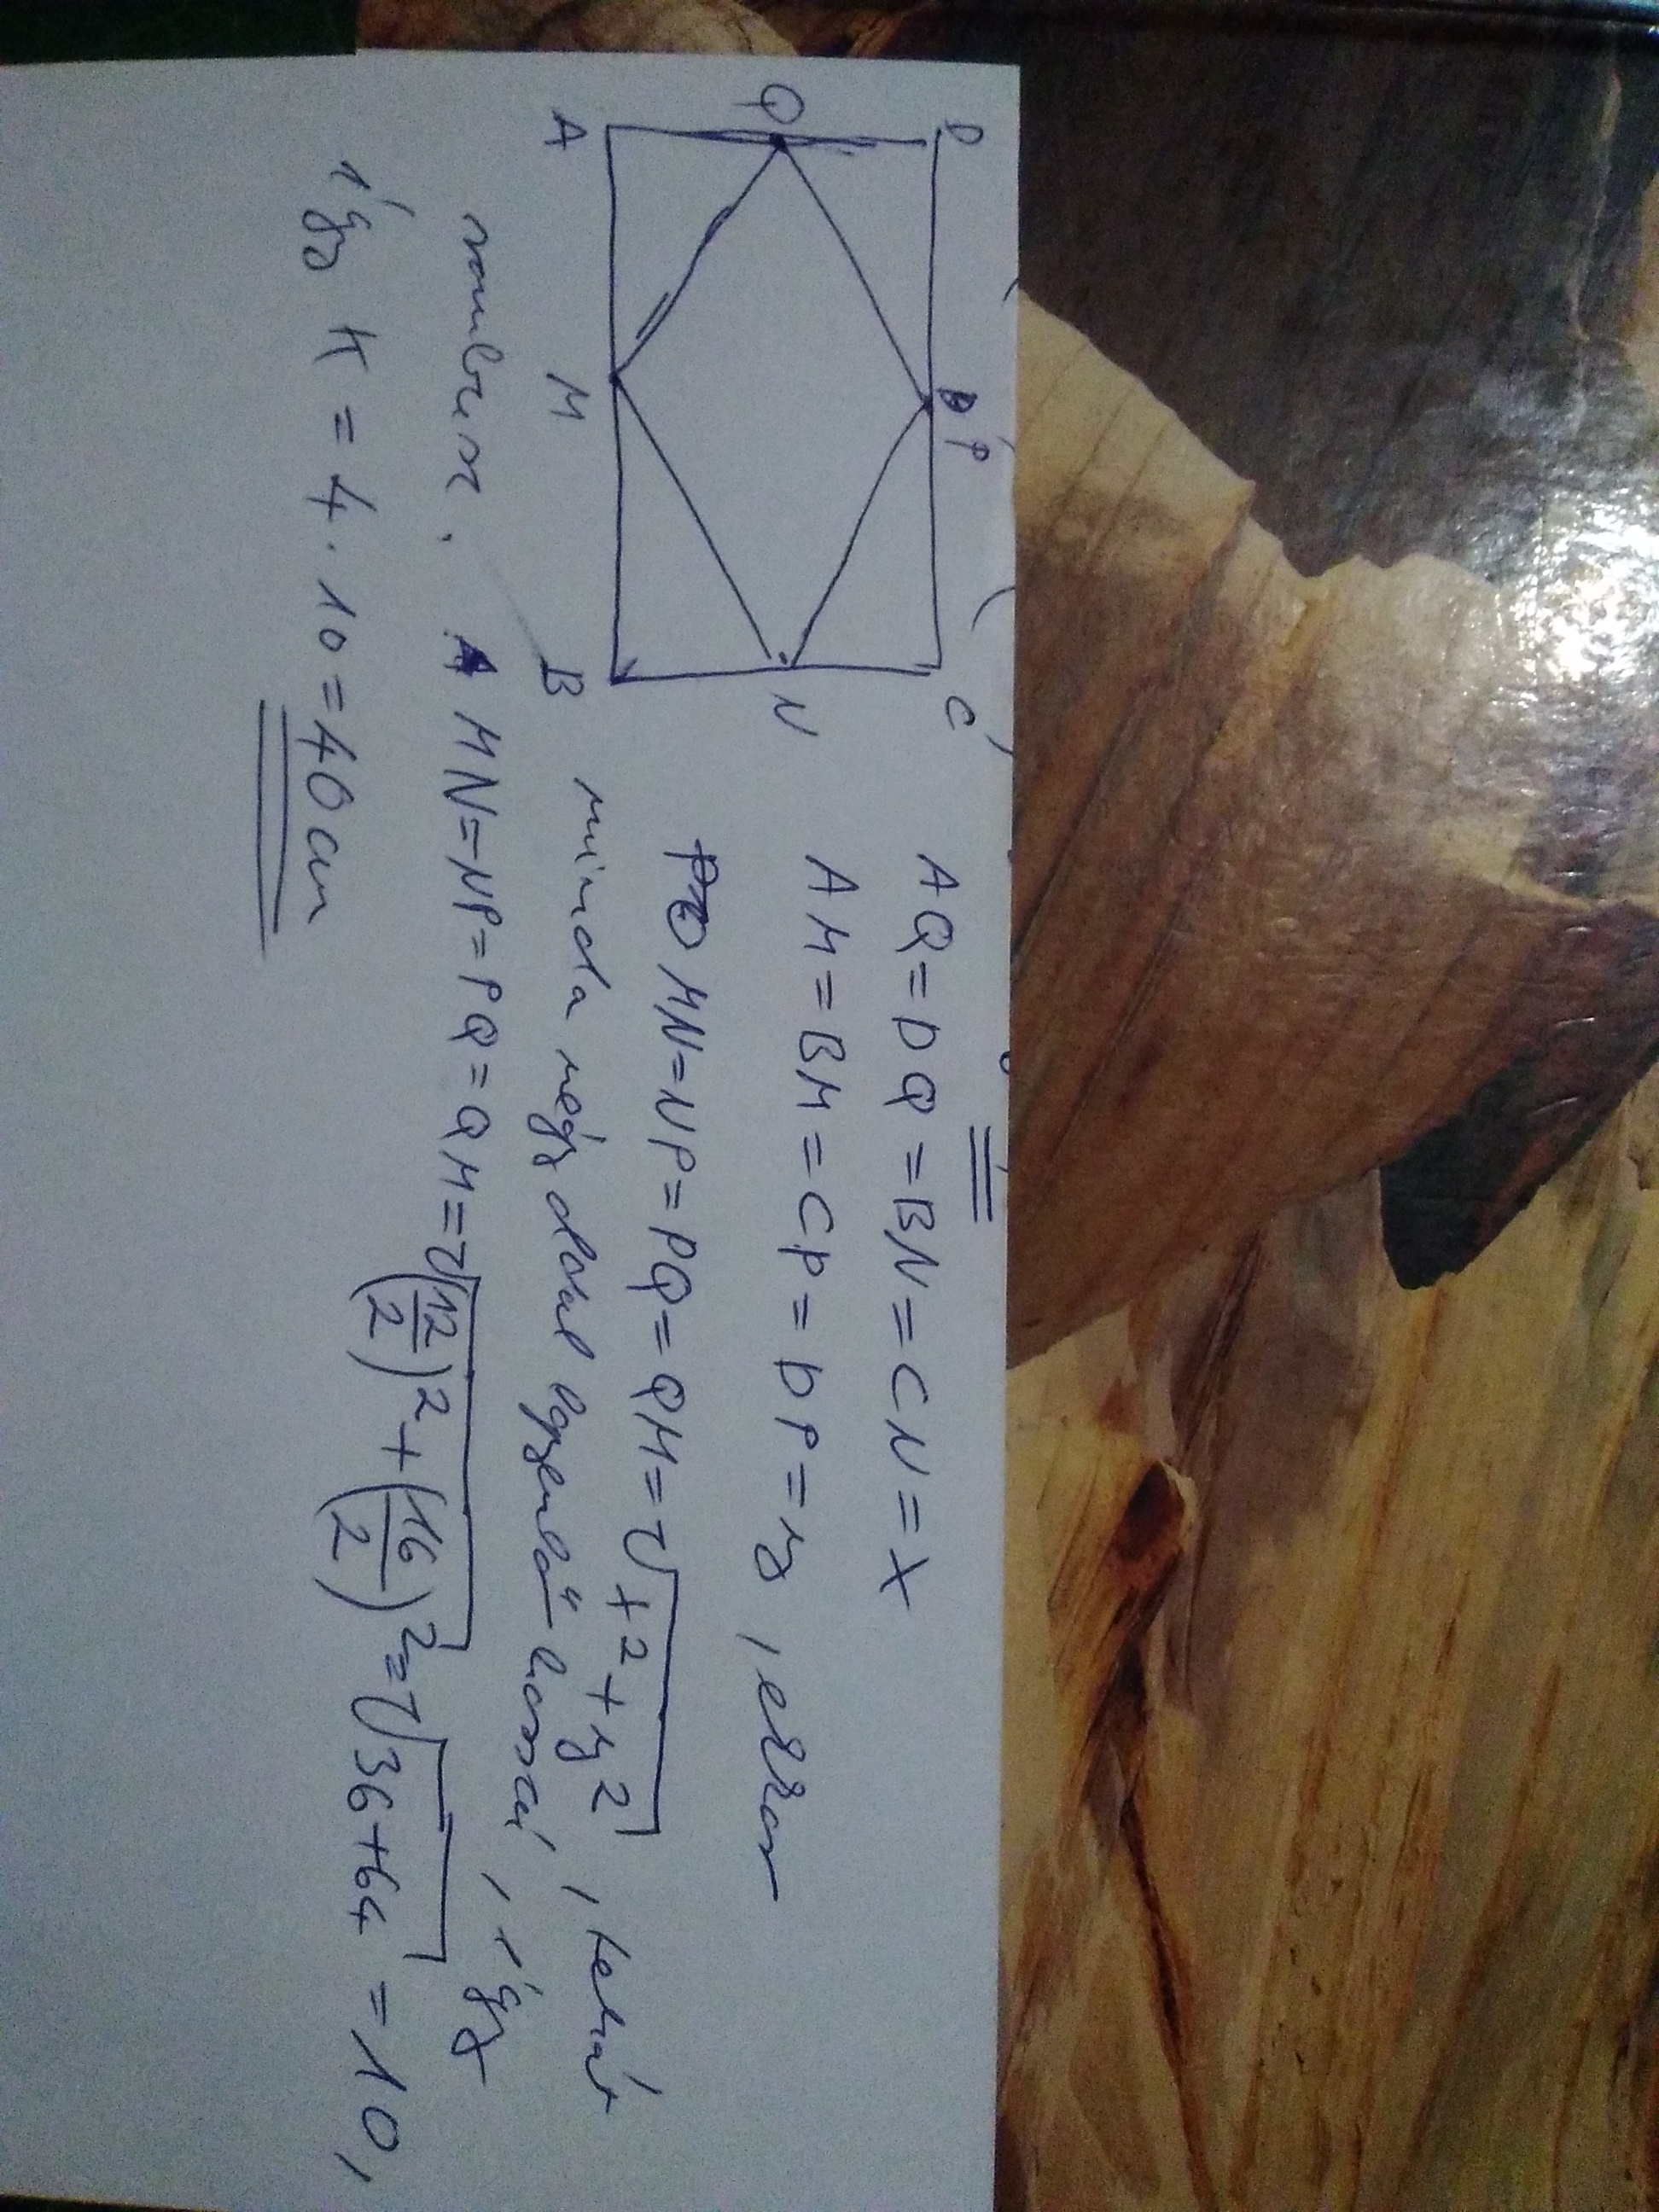 D P C
Q N
A M B
AQ=DQ=BN=CN=X
AM=BM=CP=DP=y, ekkor
MN=NP=PQ=QM=√x²+y², tehát
mind a négy oldal egyenlő hosszú, így
rombusz. MN=NP=PQ=QM=√(12/2)²+(16/2)²=√36+64=10,
így K=4·10=40cm